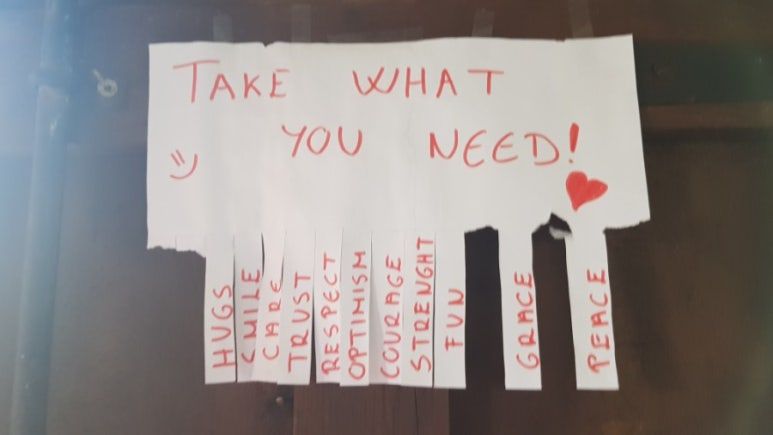 TAKE WHAT
YOU NEED!
=)
HUGS
SMILE
CARE
TRUST
RESPECT
OPTIMISM
COURAGE
STRENGHT
FUN
GRACE
PEACE